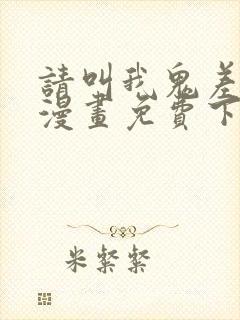 請叫我鬼差
漫畫免費下
米粲粲